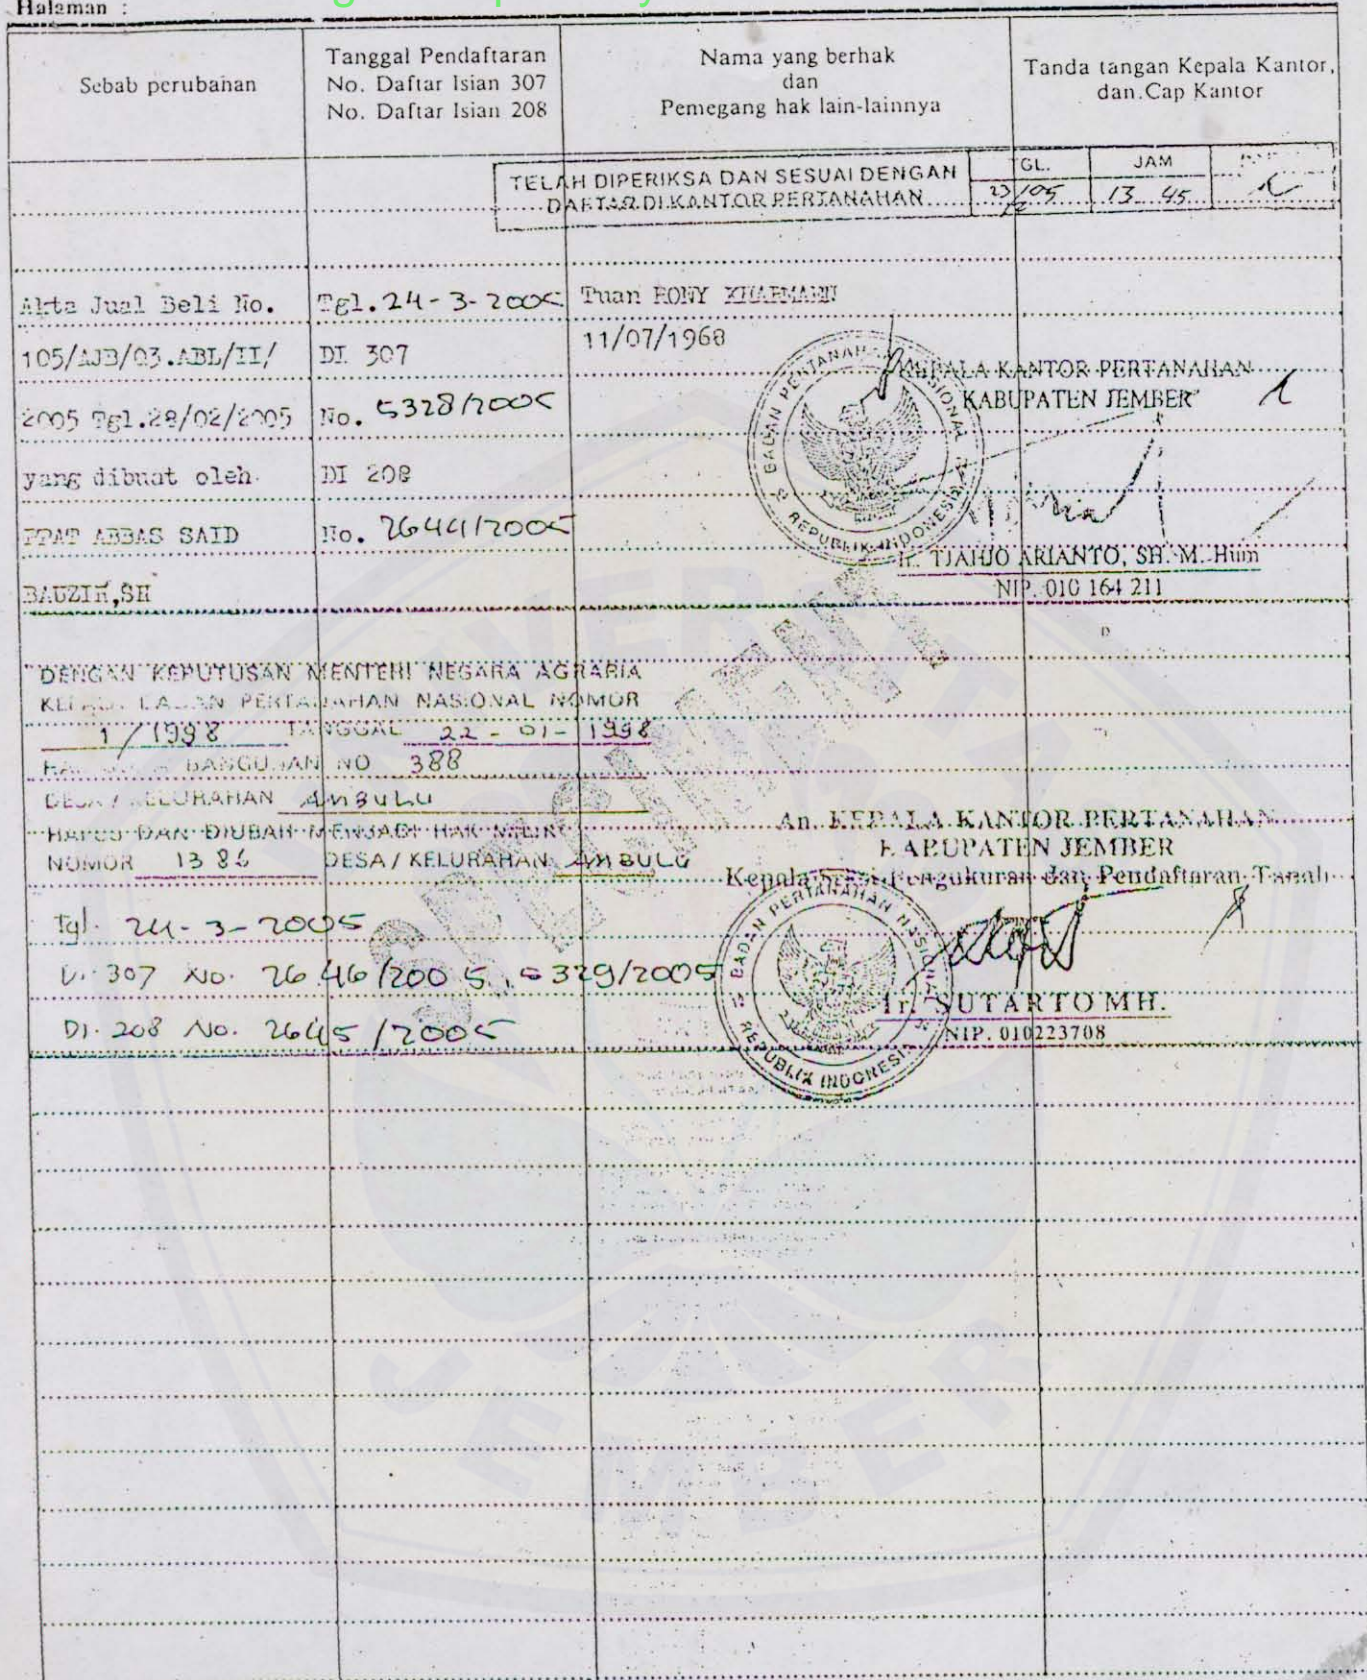 Halaman :
Sebab perubahan
Tanggal Pendaftaran
No. Daftar Isian 307
No. Daftar Isian 208
Nama yang berhak
dan
Pemegang hak lain-lainnya
Tanda tangan Kepala Kantor,
dan Cap Kantor
TELAH DIPERIKSA DAN SESUAI DENGAN
DAFTAR DI KANTOR PERTANAHAN
TGL.
JAM
13 45
Akta Jual Beli No.
105/AJB/03.ABL/II/
2005 Tgl.28/02/2005
yang dibuat oleh
PPAT ABBAS SAID
BAUZIR,SH
Tgl. 24-3-2005
DI 307
No. 5328/2005
DI 208
No. 2644/2005
Tuan RONY
11/07/1968
KEPALA KANTOR PERTANAHAN
KABUPATEN JEMBER
BADAN PERTANAHAN NASIONAL
REPUBLIK INDONESIA
Ir. TJAHJO ARIANTO, SH. M. Hum
NIP. 010 164 211
DENGAN KEPUTUSAN MENTERI NEGARA AGRARIA
KEPALA BADAN PERTANAHAN NASIONAL NOMOR
1/1998 TANGGAL 22-01-1998
BANGUNAN NO 388
DESA / KELURAHAN AMBULU
HAPUS DAN DIUBAH MENJADI HAK MILIK
NOMOR 1386 DESA / KELURAHAN AMBULU
Tgl. 24-3-2005
D. 307 No. 2646/2005, 5329/2005
DI. 208 No. 2645/2005
An. KEPALA KANTOR PERTANAHAN
KABUPATEN JEMBER
Kepala Seksi Pengukuran dan Pendaftaran Tanah
BADAN PERTANAHAN NASIONAL
REPUBLIK INDONESIA
Ir. SUTARTO MH.
NIP. 010223708